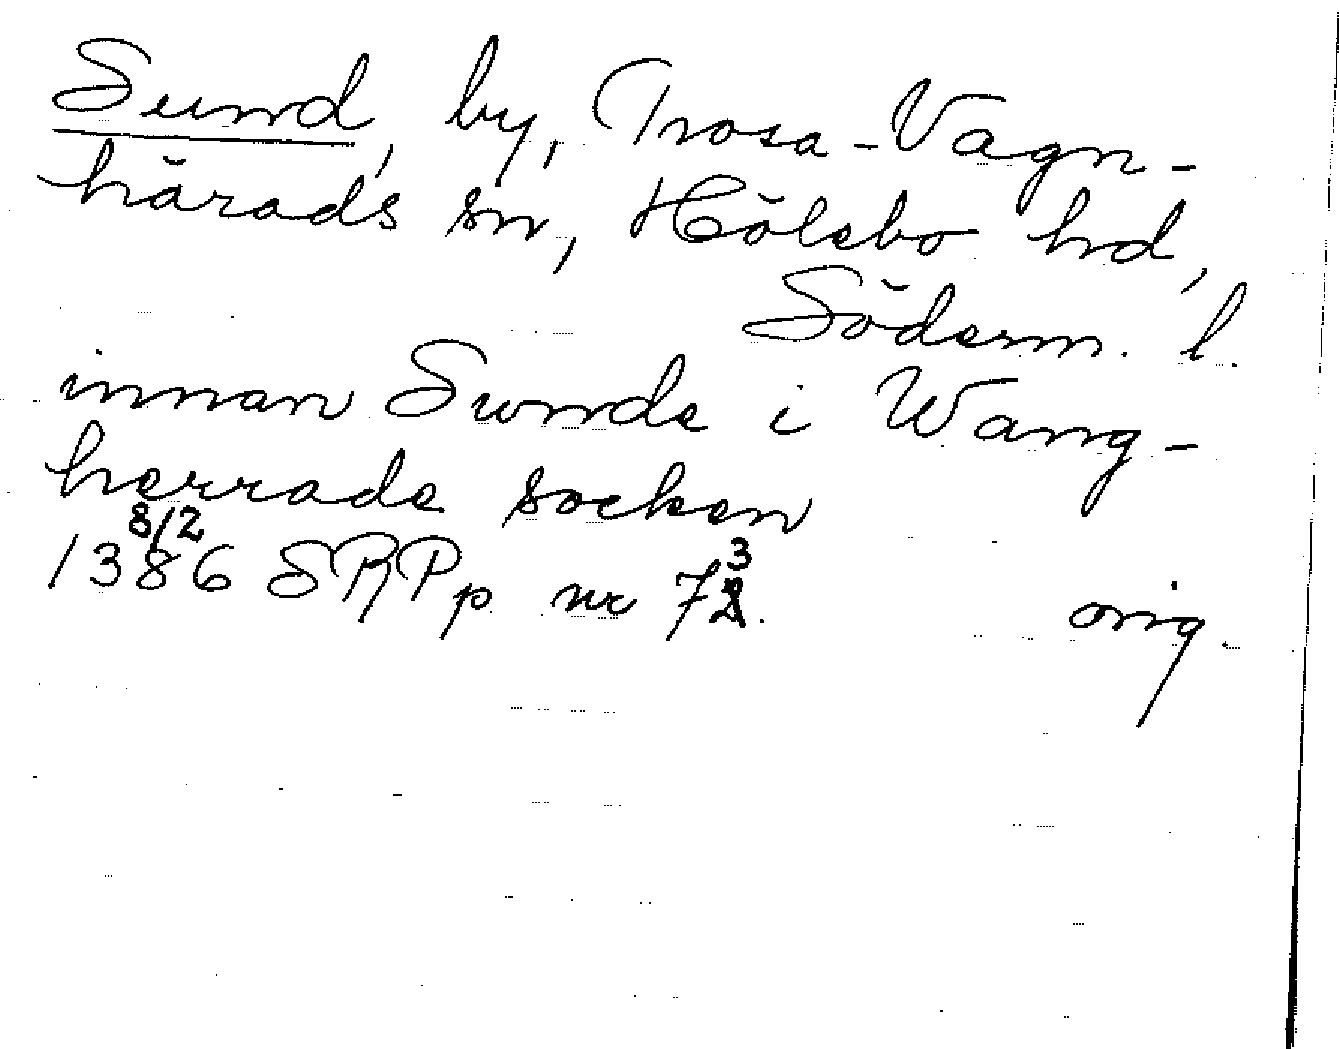 Sund, by, Trosa-Vagn-
härads sn, Hölebo hd,
Söderm. l.
innan Sunde i Wang-
herrade socken
8/2
1386 SRPp nr 73.
orig.